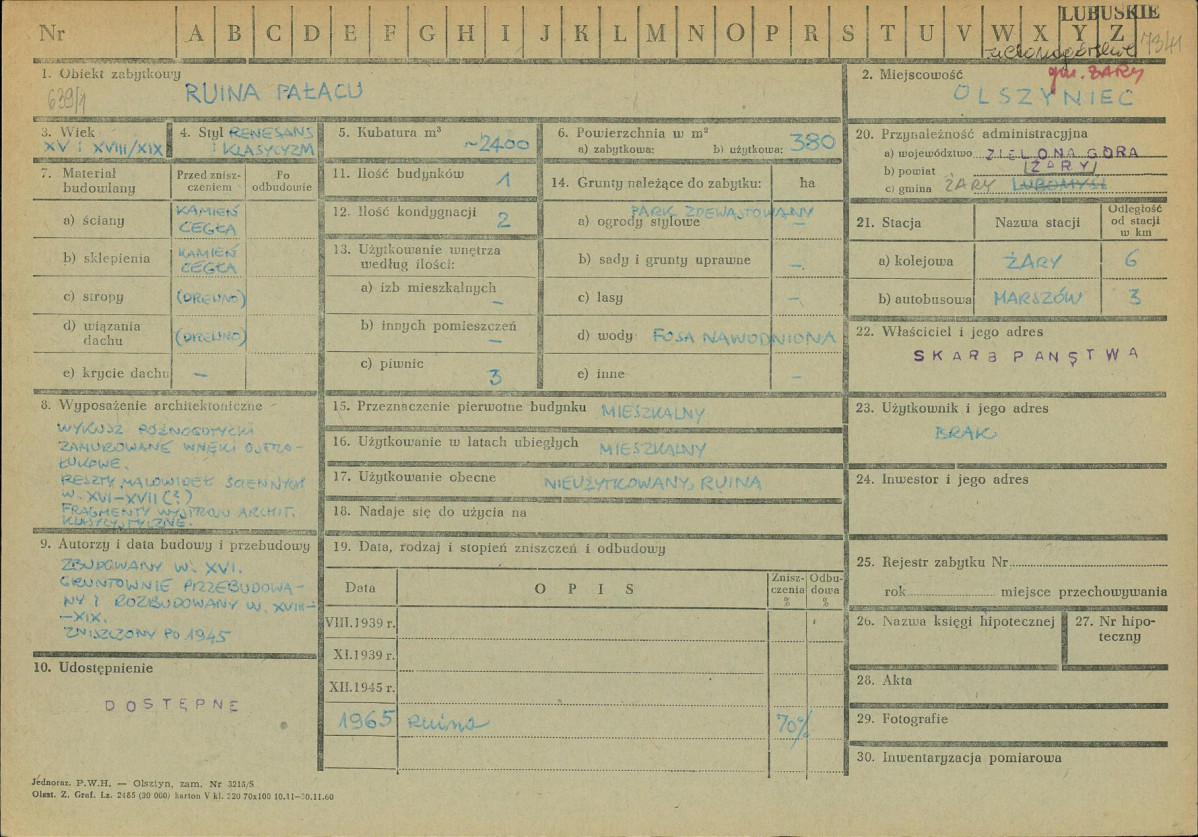 LUBUSKIE
Nr A B C D E F G H I J K L M N O P R S T U V W X Y Z
zielonogórskie 73/41
1. Obiekt zabytkowy
639/1 RUINA PAŁACU
2. Miejscowość gm. ŻARY
OLSZYNIEC
3. Wiek
XV i XVIII/XIX
4. Styl RENESANS
i KLASYCYZM
5. Kubatura m³
~2400
6. Powierzchnia w m²
a) zabytkowa: b) użytkowa: 380
20. Przynależność administracyjna
a) województwo ZIELONA GÓRA
b) powiat (ŻARY)
c) gmina ŻARY LUBOMYŚL
7. Materiał
budowlany
Przed znisz-
czeniem
Po
odbudowie
a) ściany KAMIEŃ
CEGŁA
b) sklepienia KAMIEŃ
CEGŁA
c) stropy (DREWNO)
d) wiązania
dachu (DREWNO)
e) krycie dachu –
11. Ilość budynków 1
12. Ilość kondygnacji 2
13. Użytkowanie wnętrza
według ilości:
a) izb mieszkalnych –
b) innych pomieszczeń –
c) piwnic 3
14. Grunty należące do zabytku: ha
PARK ZDEWASTOWANY
a) ogrody stylowe –
b) sady i grunty uprawne –
c) lasy –
d) wody FOSA NAWODNIONA
e) inne –
21. Stacja Nazwa stacji Odległość
od stacji
w km
a) kolejowa ŻARY 6
b) autobusowa MARSZÓW 3
22. Właściciel i jego adres
SKARB PAŃSTWA
8. Wyposażenie architektoniczne
WYKUSZ PÓŹNOGOTYCKI
ZAMUROWANE WNĘKI OSTRO-
ŁUKOWE.
RESZTY MALOWIDEŁ ŚCIENNYCH
W. XVI–XVII (?)
FRAGMENTY WYSTROJU ARCHIT.
KLASYCYSTYCZNE.
15. Przeznaczenie pierwotne budynku MIESZKALNY
16. Użytkowanie w latach ubiegłych MIESZKALNY
17. Użytkowanie obecne NIEUŻYTKOWANY, RUINA
18. Nadaje się do użycia na
23. Użytkownik i jego adres
BRAK
24. Inwestor i jego adres
9. Autorzy i data budowy i przebudowy
ZBUDOWANY W. XVI.
GRUNTOWNIE PRZEBUDOWA-
NY I ROZBUDOWANY W. XVIII-
-XIX.
ZNISZCZONY PO 1945
10. Udostępnienie
DOSTĘPNE
19. Data, rodzaj i stopień zniszczeń i odbudowy
Data O P I S Znisz-
czenia
% Odbu-
dowa
%
VIII.1939 r.
XI.1939 r.
XII.1945 r.
1965 Ruina 70%
25. Rejestr zabytku Nr
rok miejsce przechowywania
26. Nazwa księgi hipotecznej
27. Nr hipo-
teczny
28. Akta
29. Fotografie
30. Inwentaryzacja pomiarowa
Jednoraz. P.W.H. — Olsztyn, zam. Nr 3215/S
Olszt. Z. Graf. Lz. 2455 (30 000) karton V kl. 220 70x100 10.11—30.11.60